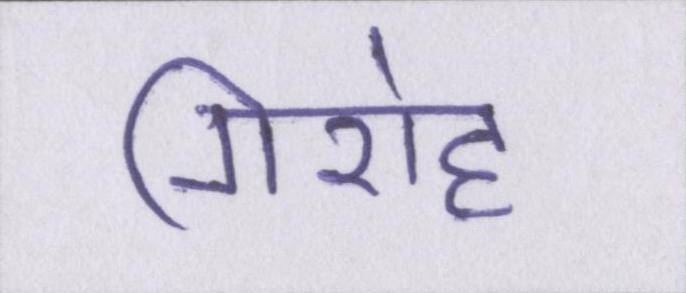 गिरोह